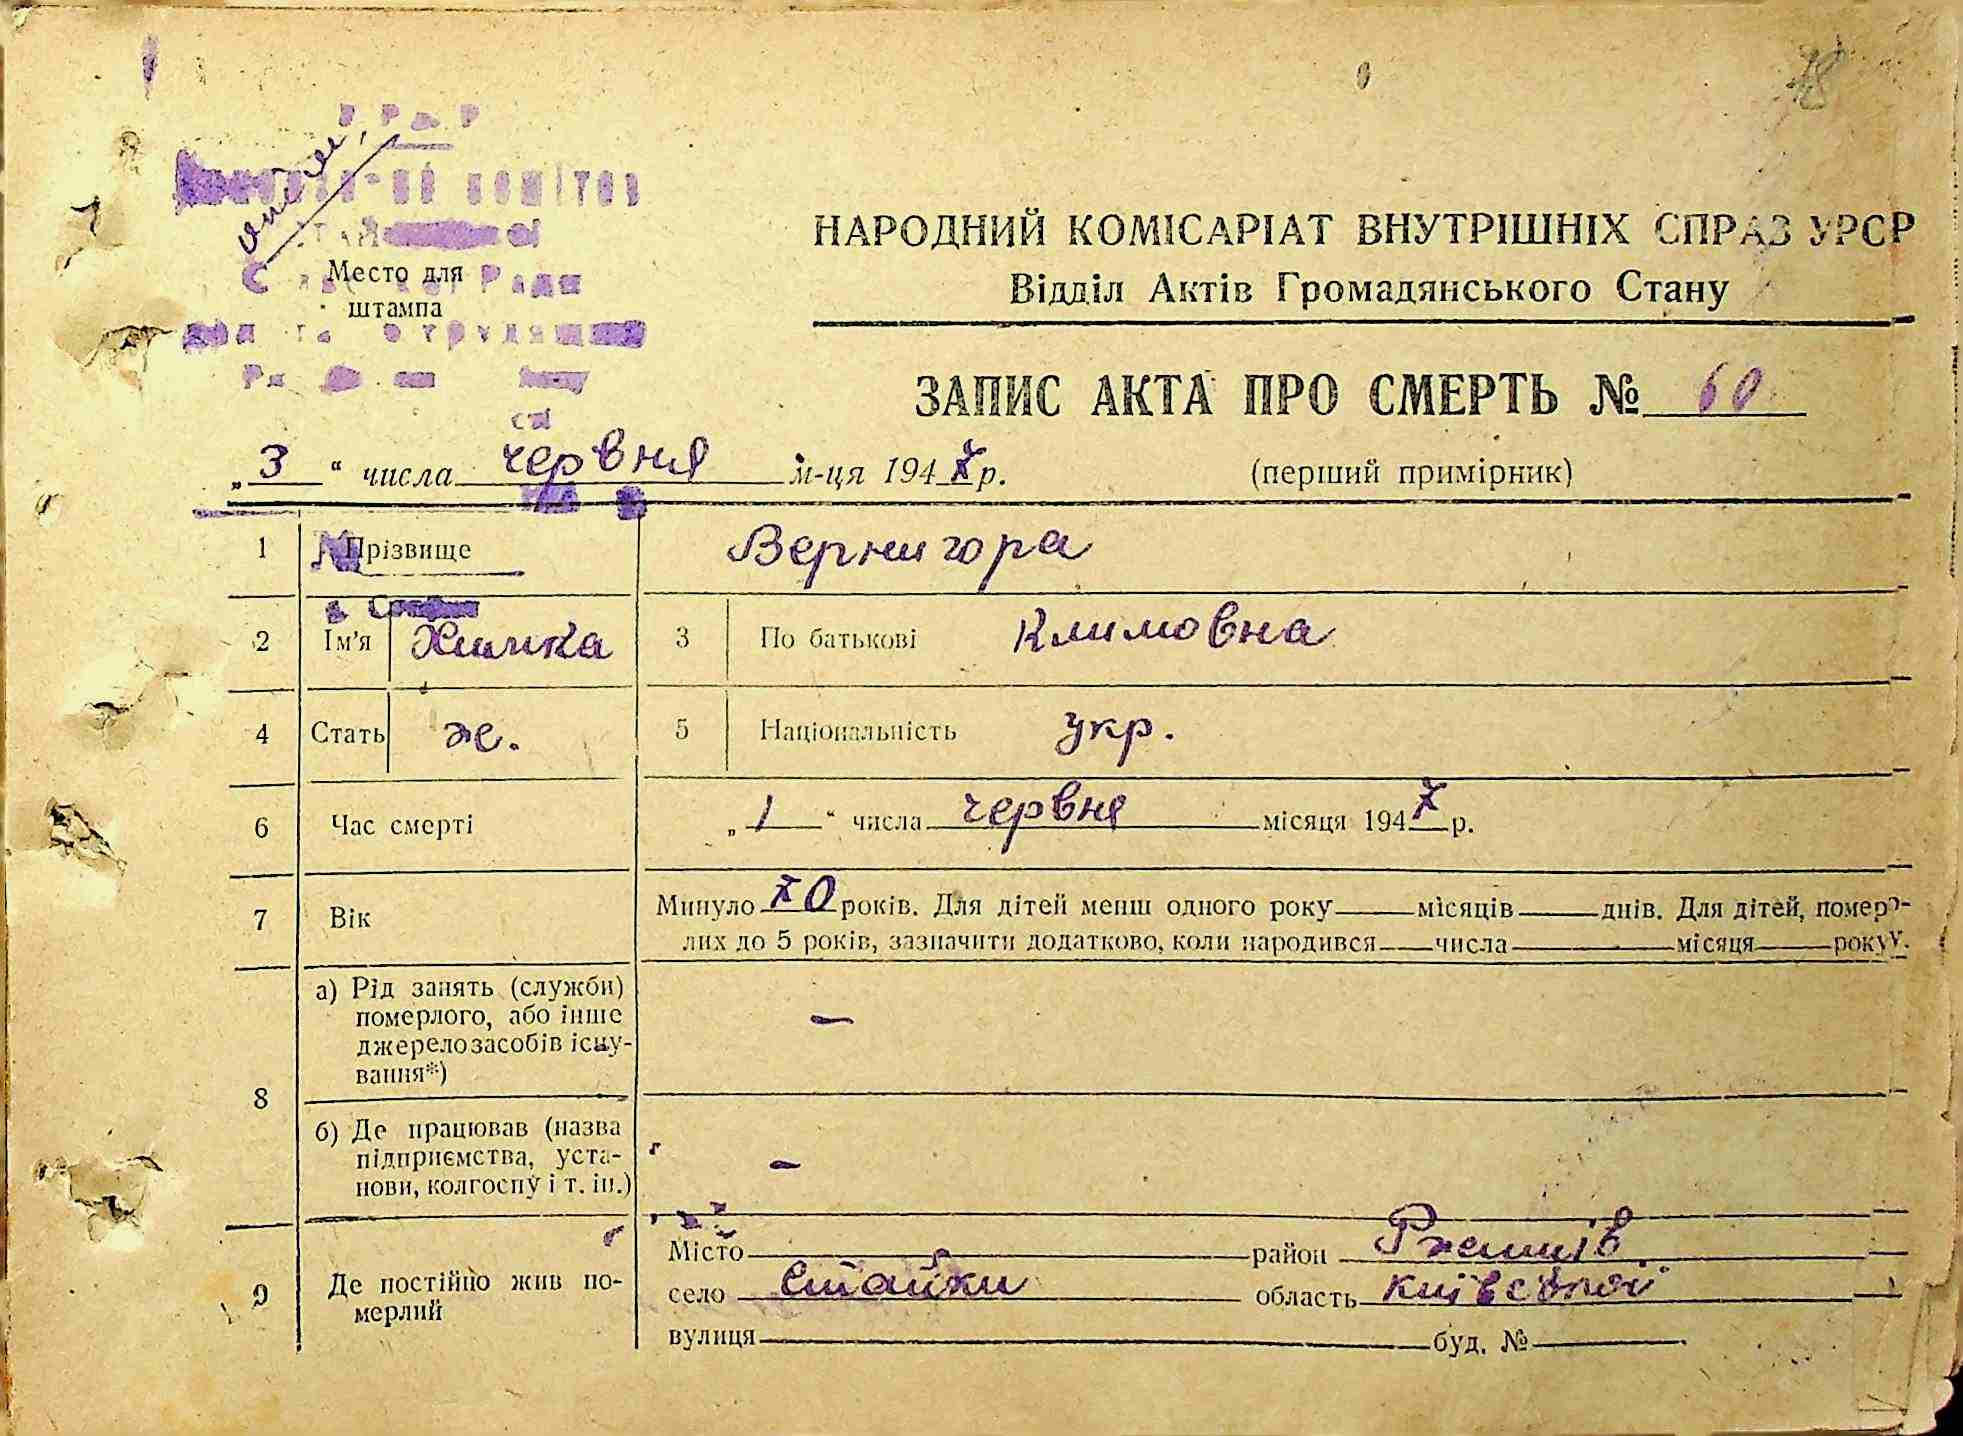 18
Место для
штампа
НАРОДНИЙ КОМІСАРІАТ ВНУТРІШНІХ СПРАВ УРСР
Відділ Актів Громадянського Стану
ЗАПИС АКТА ПРО СМЕРТЬ № 60
„3“ числа червня м-ця 1947 р.
(перший примірник)
1 Прізвище Вернигора
2 Ім'я Химка 3 По батькові Климовна
4 Стать ж. 5 Національність укр.
6 Час смерті „1“ числа червня місяця 1947 р.
7 Вік Минуло 70 років. Для дітей менш одного року місяців днів. Для дітей, помер-
лих до 5 років, зазначити додатково, коли народився числа місяця року.
8 а) Рід занять (служби)
померлого, або інше
джерело засобів існу-
вання*) –
б) Де працював (назва
підприємства, уста-
нови, колгоспу і т. ін.) –
9 Де постійно жив по-
мерлий
Місто район Ржищів
село Стайки область Київської
вулиця буд. №